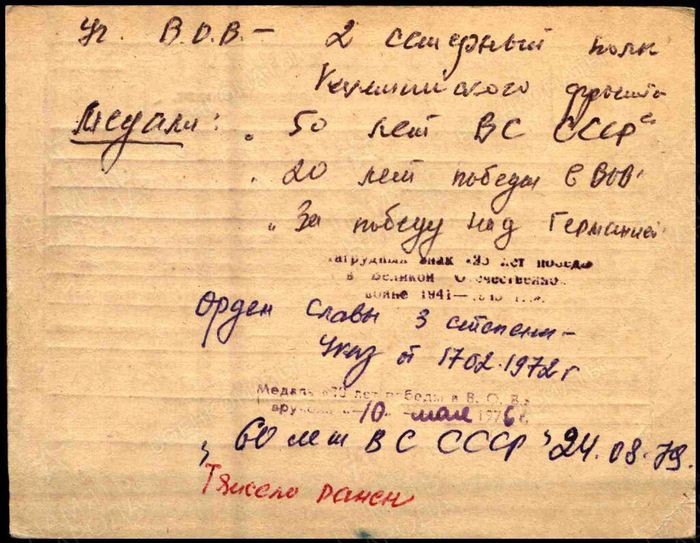 Уч. В.О.В. – 2 северный полк
фронта
Медали: „50 лет ВС СССР"
„20 лет победы в ВОВ"
„За победу над Германией
нагрудный знак «25 лет победы
в Великой Отечественной
войне 1941—1945 г.г.»
Орден Славы 3 степени –
Указ от 17.02.1972 г
Медаль «30 лет победы в В. О. В.»
вручена «10» мая 1976 г.
„60 лет ВС СССР" 24.08.79.
Тяжело ранен